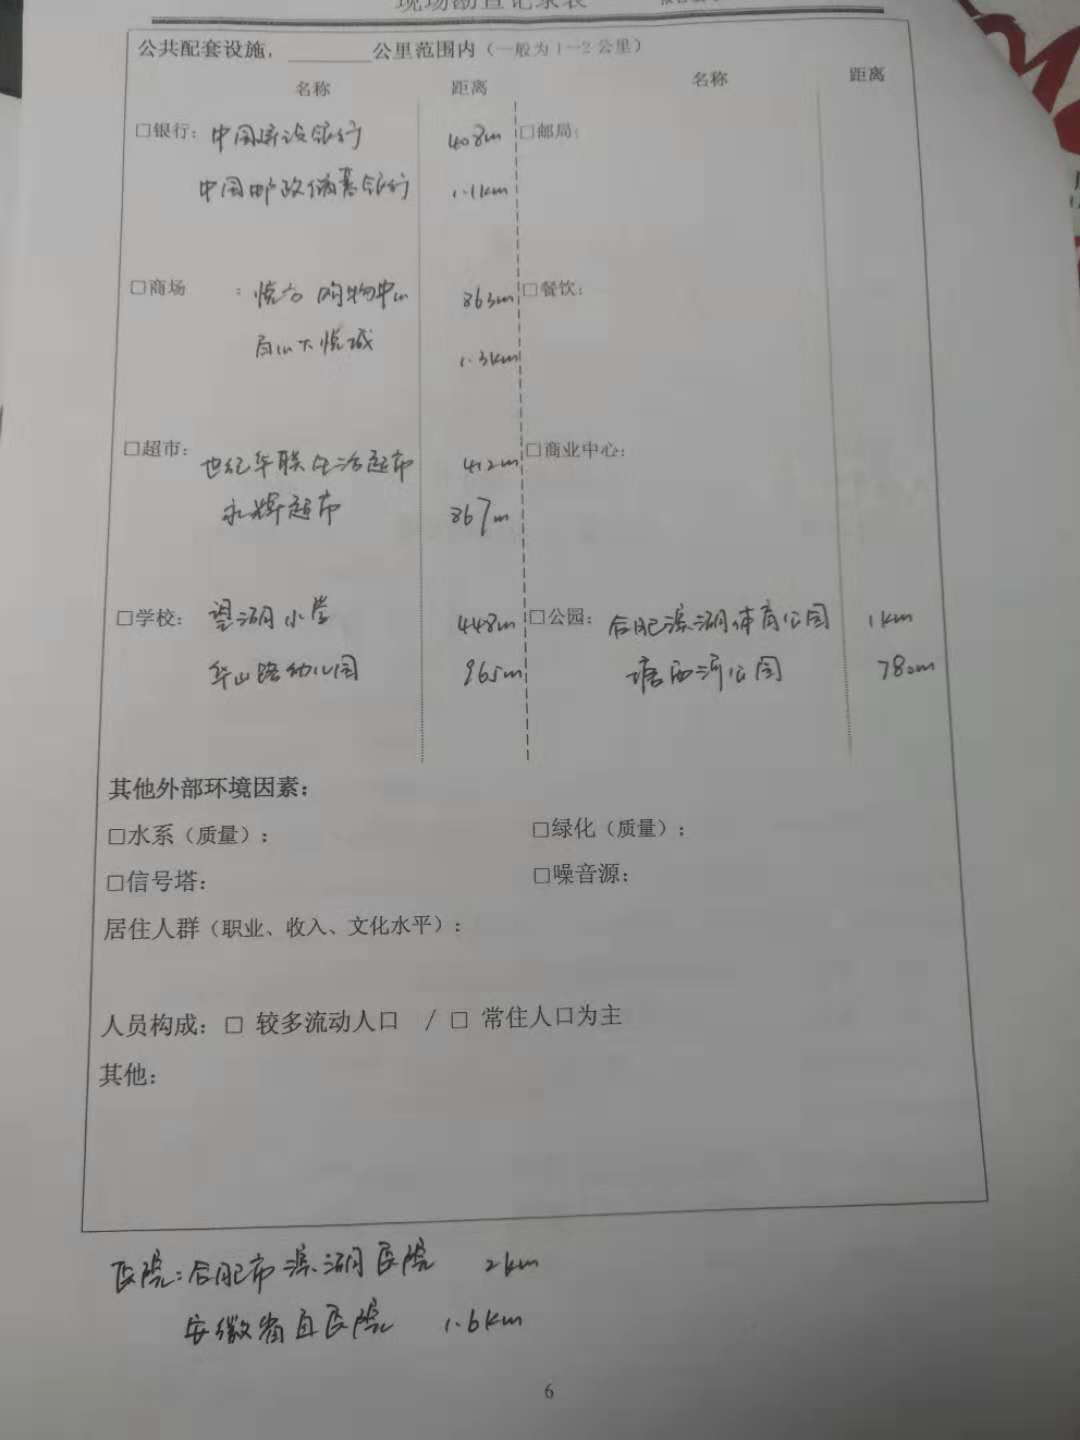 现场勘查记录表
公共配套设施，______公里范围内（一般为1—2公里）
名称 距离 名称 距离
□银行：中国建设银行 408m □邮局：
中国邮政储蓄银行 1.1km
□商场 ：悦方购物中心 863m □餐饮：
大悦城 1.3km
□超市：世纪华联生活超市 412m □商业中心：
永辉超市 867m
□学校：望湖小学 448m □公园：合肥滨湖体育公园 1km
华山路幼儿园 965m 塘西河公园 780m
其他外部环境因素：
□水系（质量）： □绿化（质量）：
□信号塔： □噪音源：
居住人群（职业、收入、文化水平）：
人员构成：□ 较多流动人口 / □ 常住人口为主
其他：
医院：合肥市滨湖医院 2km
安徽省直医院 1.6km
6